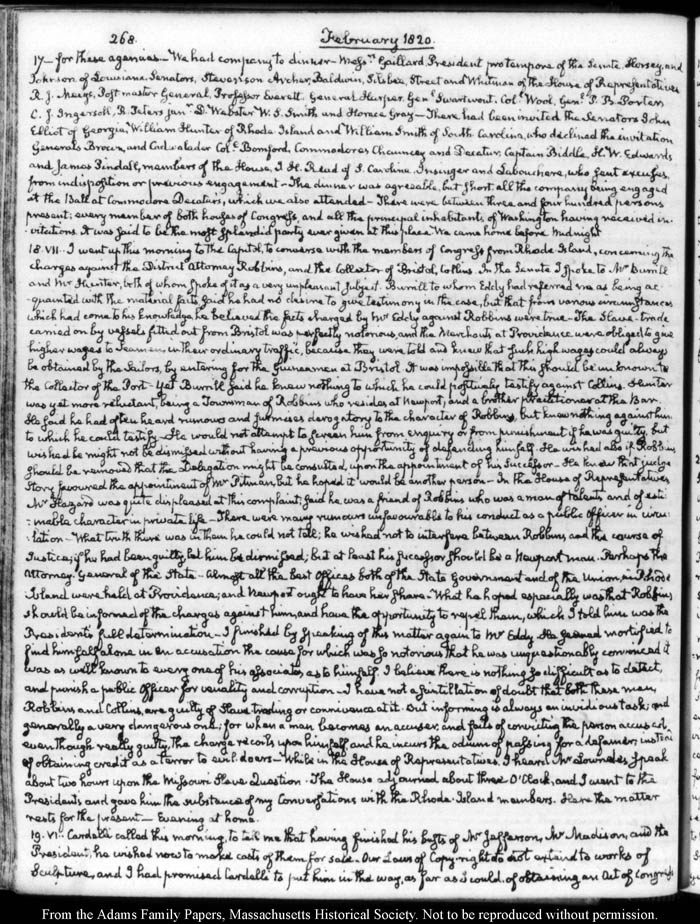 268. February 1820.
17 — for these agencies — We had company to dinner — Mess.rs Gaillard President pro tempore of the Senate. Horsey, and
Johnson of Louisiana, Senators, Stevenson Archer, Baldwin, Silsbee, Street and Whitman of the House of Representatives
R. J. Meigs, Postmaster General, Professor Everett, General Harper, Gen.l Swartwout, Col. Wool, Gen.l P. B. Porter
C. J. Ingersoll, R. Peters jun.r D. Webster W. S. Smith and Horace Gray — There had been invited the Senators John
Elliot of Georgia, William Hunter of Rhode Island and William Smith of South Carolina, who declined the invitation
Generals Brown, and Cadwalader Col. Bomford, Commodores Chauncey and Decatur, Captain Biddle, H. W. Edwards
and James Pindall, members of the House, J. H. Read of S. Carolina, Insinger and Labouchere, who sent excuses,
from indisposition or previous engagement — The dinner was agreeable, but short, all the company being engaged
at the Ball at Commodore Decatur's, which we also attended — There were between three and four hundred persons
present; every member of both houses of Congress, and all the principal inhabitants of Washington having received in-
vitations. It was said to be the most splendid party ever given at this place. We came home before Midnight
18. VII. I went up this morning to the Capitol, to converse with the members of Congress from Rhode Island, concerning the
charges against the District Attorney Robbins, and the Collector of Bristol, Collins. In the Senate I spoke to Mr Burrill
and Mr Hunter, both of whom spoke of it as a very unpleasant subject. Burrill to whom Eddy had referred me as being ac-
quainted with the material facts said he had no desire to give testimony in the case, but that from various circumstances
which had come to his knowledge he believed the facts charged by Mr Eddy against Robbins were true — The Slave-trade
carried on by vessels fitted out from Bristol was perfectly notorious, and the Merchants at Providence were obliged to give
higher wages to Seamen, in their ordinary traffic, because they were told and knew that such high wages could always
be obtained by the Sailors, by entering for the Guineamen at Bristol. It was impossible that this should be unknown to
the Collector of the Port — Yet Burrill said he knew nothing to which he could positively testify against Collins. Hunter
was yet more reluctant, being a Townsman of Robbins who resides at Newport, and a brother practitioner at the Bar.
He said he had often heard rumours and surmises derogatory to the character of Robbins, but knew nothing against him
to which he could testify — He would not attempt to screen him from enquiry or from punishment if he was guilty, but
wished he might not be dismissed without having a previous opportunity of defending himself. He wished also if Robbins
should be removed that the Delegation might be consulted, upon the appointment of his Successor — He knew that judge
Story favoured the appointment of Mr Pitman, but he hoped it would be another person — In the House of Representatives,
Mr Hazard was quite displeased at this complaint; said he was a friend of Robbins who was a man of talents and of esti-
mable character in private life — There were many rumours unfavourable to his conduct as a public officer in circu-
lation — What truth there was in them he could not tell; he wished not to interfere between Robbins, and the course of
Justice; if he had been guilty, let him be dismissed; but at least his successor should be a Newport man. Perhaps the
Attorney General of the State — Almost all the best Offices both of the State Government and of the Union, in Rhode
Island were held at Providence; and Newport ought to have her share — What he hoped especially was that Robbins
should be informed of the charges against him, and have the opportunity to repel them, which I told him was the
President's full determination — I finished by speaking of this matter again to Mr Eddy. He seemed mortified to
find himself alone in an accusation the cause for which was so notorious that he was unquestionably convinced it
was as well known to every one of his associates, as to himself. I believe there is nothing so difficult as to detect,
and punish a public Officer for venality and corruption — I have not a scintillation of doubt that both these men,
Robbins and Collins, are guilty of Slave trading or connivance at it. But informing is always an invidious task; and
generally a very dangerous one; for when a man becomes an accuser, and fails of convicting the person accused,
even though really guilty, the charge recoils upon himself and he incurs the odium of passing for a defamer, instead
of obtaining credit as a terror to evil-doers — While in the House of Representatives, I heard Mr Lowndes speak
about two hours upon the Missouri Slave Question. The House adjourned about three O'Clock, and I went to the
President's and gave him the substance of my Conversations with the Rhode Island members. Here the matter
rests for the present — Evening at home.
19. VI. Cardelli called this morning, to tell me that having finished his busts of Mr Jefferson, Mr Madison, and the
President, he wished now to make casts of them for sale. Our Laws of Copy-right do not extend to works of
Sculpture, and I had promised Cardelli to put him in the way, as far as I could, of obtaining an Act of Congress
From the Adams Family Papers, Massachusetts Historical Society. Not to be reproduced without permission.